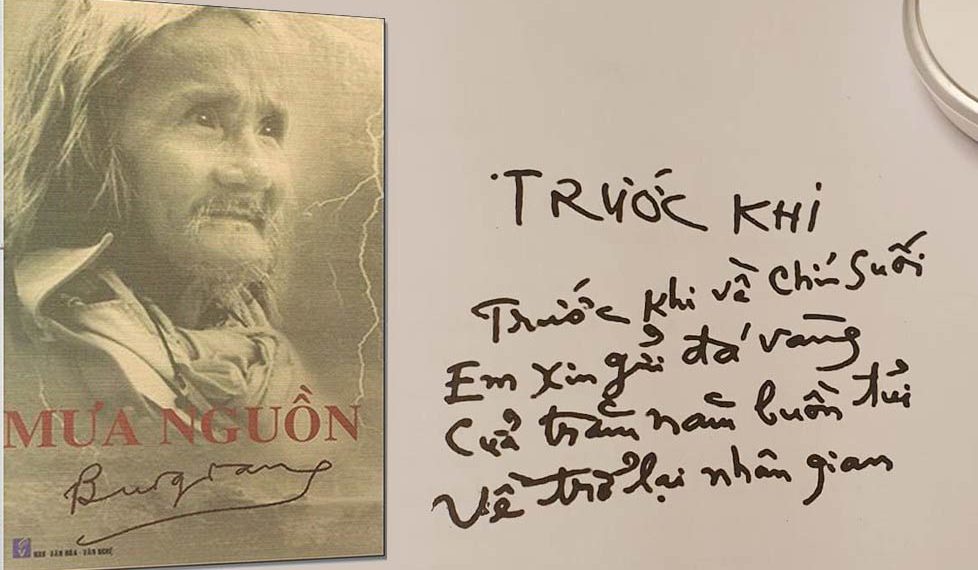 MƯA NGUỒN
Bùi giáng
NXB VĂN HÓA - VĂN NGHỆ
TRƯỚC KHI
Trước khi về chín suối
Em xin gửi đá vàng
Của trăm năm buồn tủi
Về trở lại nhân gian